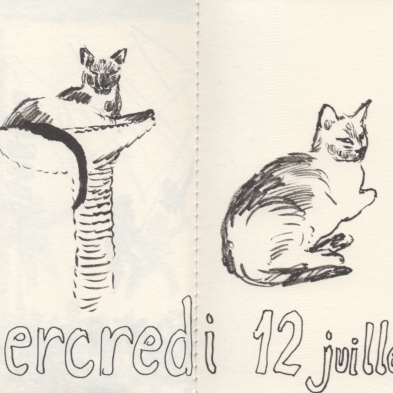 ercredi 12 juille